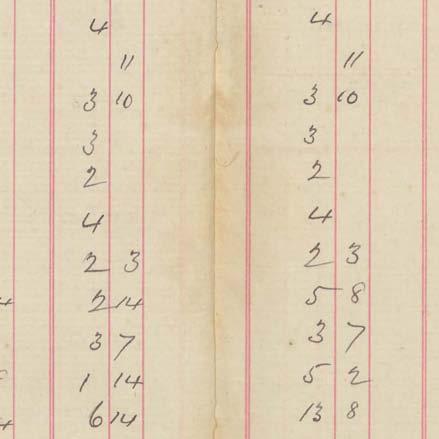 4 4
11 11
3 10 3 10
3 3
2 2
4 4
2 3 2 3
2 14 5 8
3 7 3 7
1 14 5 2
6 14 13 8